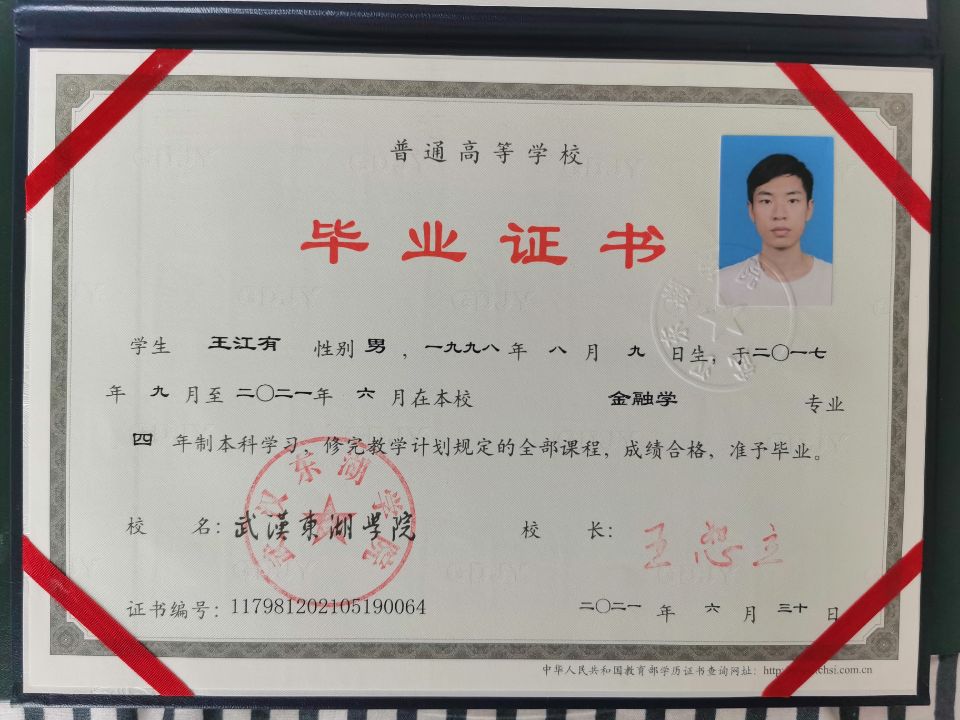 普通高等学校
毕业证书
学生 王江有 性别 男 ，一九九八 年 八 月 九 日生，于二〇一七
年 九 月至 二〇二一年 六 月在本校 金融学 专业
四 年制本科学习，修完教学计划规定的全部课程，成绩合格，准予毕业。
校 名：武漢東湖學院 校 长：王恕立
武汉东湖学院
证书编号：117981202105190064 二〇二一 年 六 月 三十 日
中华人民共和国教育部学历证书查询网址：http
chsi.com.cn